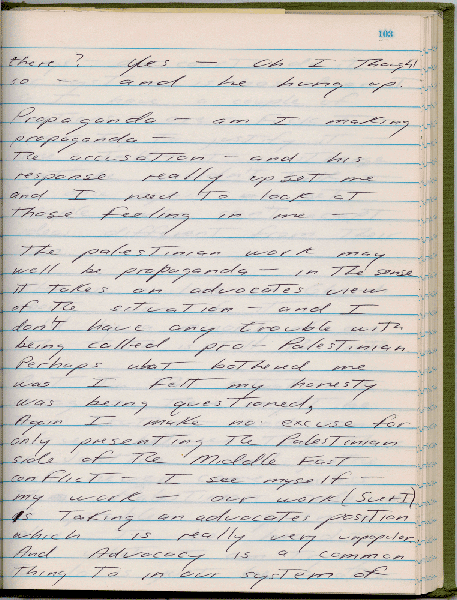 103
there? Yes — Oh I Thought
so — and he hung up.
Propaganda — am I making
propaganda —
The accusation — and his
response really upset me
and I need To look at
Those feeling in me —
The palestinian work may
well be propaganda — in The sense
it Takes an advocates view
of The situation — and I
don't have any Trouble with
being called pro-Palestinian
Perhaps what bothered me
was I felt my honesty
was being questioned,
Again I make no excuse for
only presenting The Palestinian
side of The Middle East
conflict — I see myself —
my work — our work (Scott)
is Taking an advocates position
which is really very unpopular.
And Advocacy is a common
Thing To in our system of